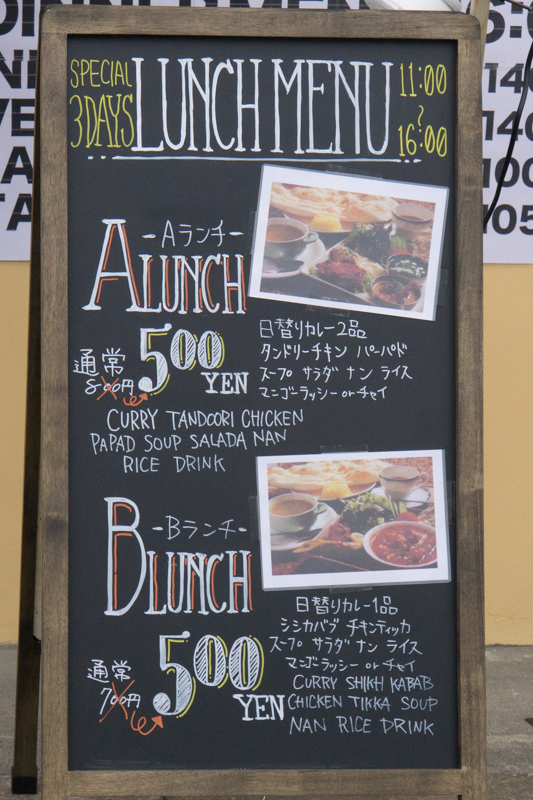 SPECIAL
3DAYS
LUNCH MENU
11:00
~
16:00
-Aランチ-
A LUNCH
通常
800円
500
YEN
日替りカレー2品
タンドリーチキン パーパド
スープ サラダ ナン ライス
マンゴーラッシー or チャイ
CURRY TANDOORI CHICKEN
PAPAD SOUP SALADA NAN
RICE DRINK
-Bランチ-
B LUNCH
通常
700円
500
YEN
日替りカレー1品
シシカバブ チキンティッカ
スープ サラダ ナン ライス
マンゴラッシー or チャイ
CURRY SHIKH KABAB
CHICKEN TIKKA SOUP
NAN RICE DRINK